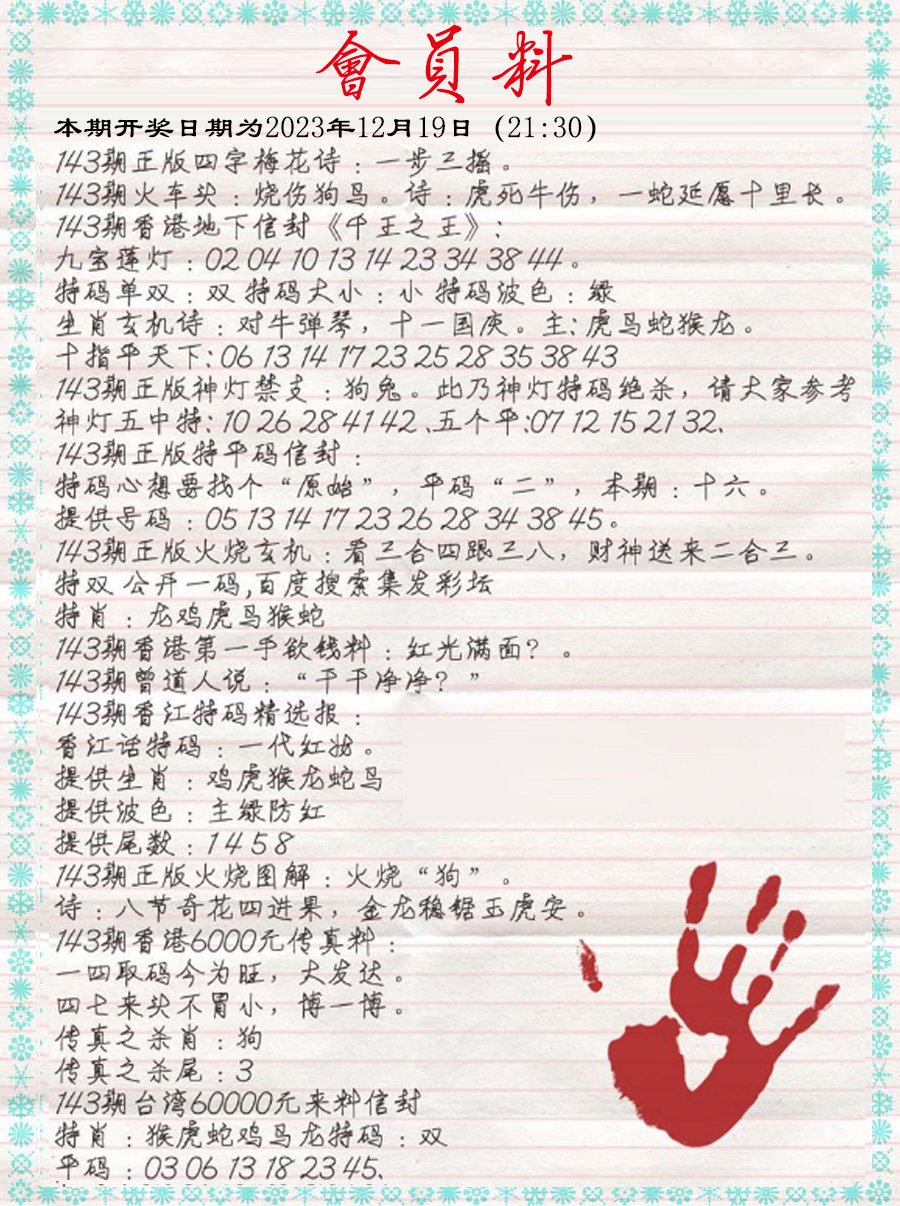 會員料
本期开奖日期为2023年12月19日 (21:30)
143期正版四字梅花诗：一步三摇。
143期火车头：烧伤狗鸟。诗：虎死牛伤，一蛇延愿十里长。
143期香港地下信封《千王之王》：
九宝莲灯：02 04 10 13 14 23 34 38 44。
特码单双：双 特码大小：小 特码波色：绿
生肖玄机诗：对牛弹琴，十一国庆。主：虎马蛇猴龙。
十指平天下：06 13 14 17 23 25 28 35 38 43
143期正版神灯禁支：狗兔。此乃神灯特码绝杀，请大家参考
神灯五中特：10 26 28 41 42、五个平：07 12 15 21 32、
143期正版特平码信封：
特码心想要找个“原始”，平码“二”，本期：十六。
提供号码：05 13 14 17 23 26 28 34 38 45。
143期正版火烧玄机：看三合四跟三八，财神送来二合三。
特双 公开一码，百度搜索集发彩坛
特肖：龙鸡虎马猴蛇
143期香港第一手欲钱料：红光满面？。
143期曾道人说：“干干净净？”
143期香江特码精选报：
香江话特码：一代红妆。
提供生肖：鸡虎猴龙蛇马
提供波色：主绿防红
提供尾数：1 4 5 8
143期正版火烧图解：火烧“狗”。
诗：八节奇花四进果，金龙稳锯玉虎安。
143期香港6000元传真料：
一四取码今为旺，大发达。
四七来头不冒小，博一博。
传真之杀肖：狗
传真之杀尾：3
143期台湾60000元来料信封
特肖：猴虎蛇鸡马龙特码：双
平码：03 06 13 18 23 45、